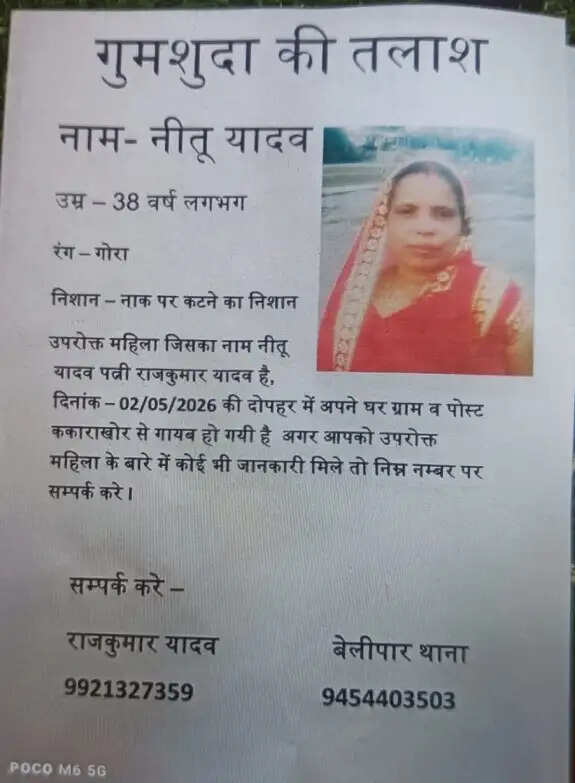 गुमशुदा की तलाश
नाम- नीतू यादव
उम्र – 38 वर्ष लगभग
रंग – गोरा
निशान – नाक पर कटने का निशान
उपरोक्त महिला जिसका नाम नीतू
यादव पत्नी राजकुमार यादव है,
दिनांक – 02/05/2026 की दोपहर में अपने घर ग्राम व पोस्ट
ककाराखोर से गायब हो गयी है अगर आपको उपरोक्त
महिला के बारे में कोई भी जानकारी मिले तो निम्न नम्बर पर
सम्पर्क करे।
सम्पर्क करे –
राजकुमार यादव
9921327359
बेलीपार थाना
9454403503
POCO M6 5G